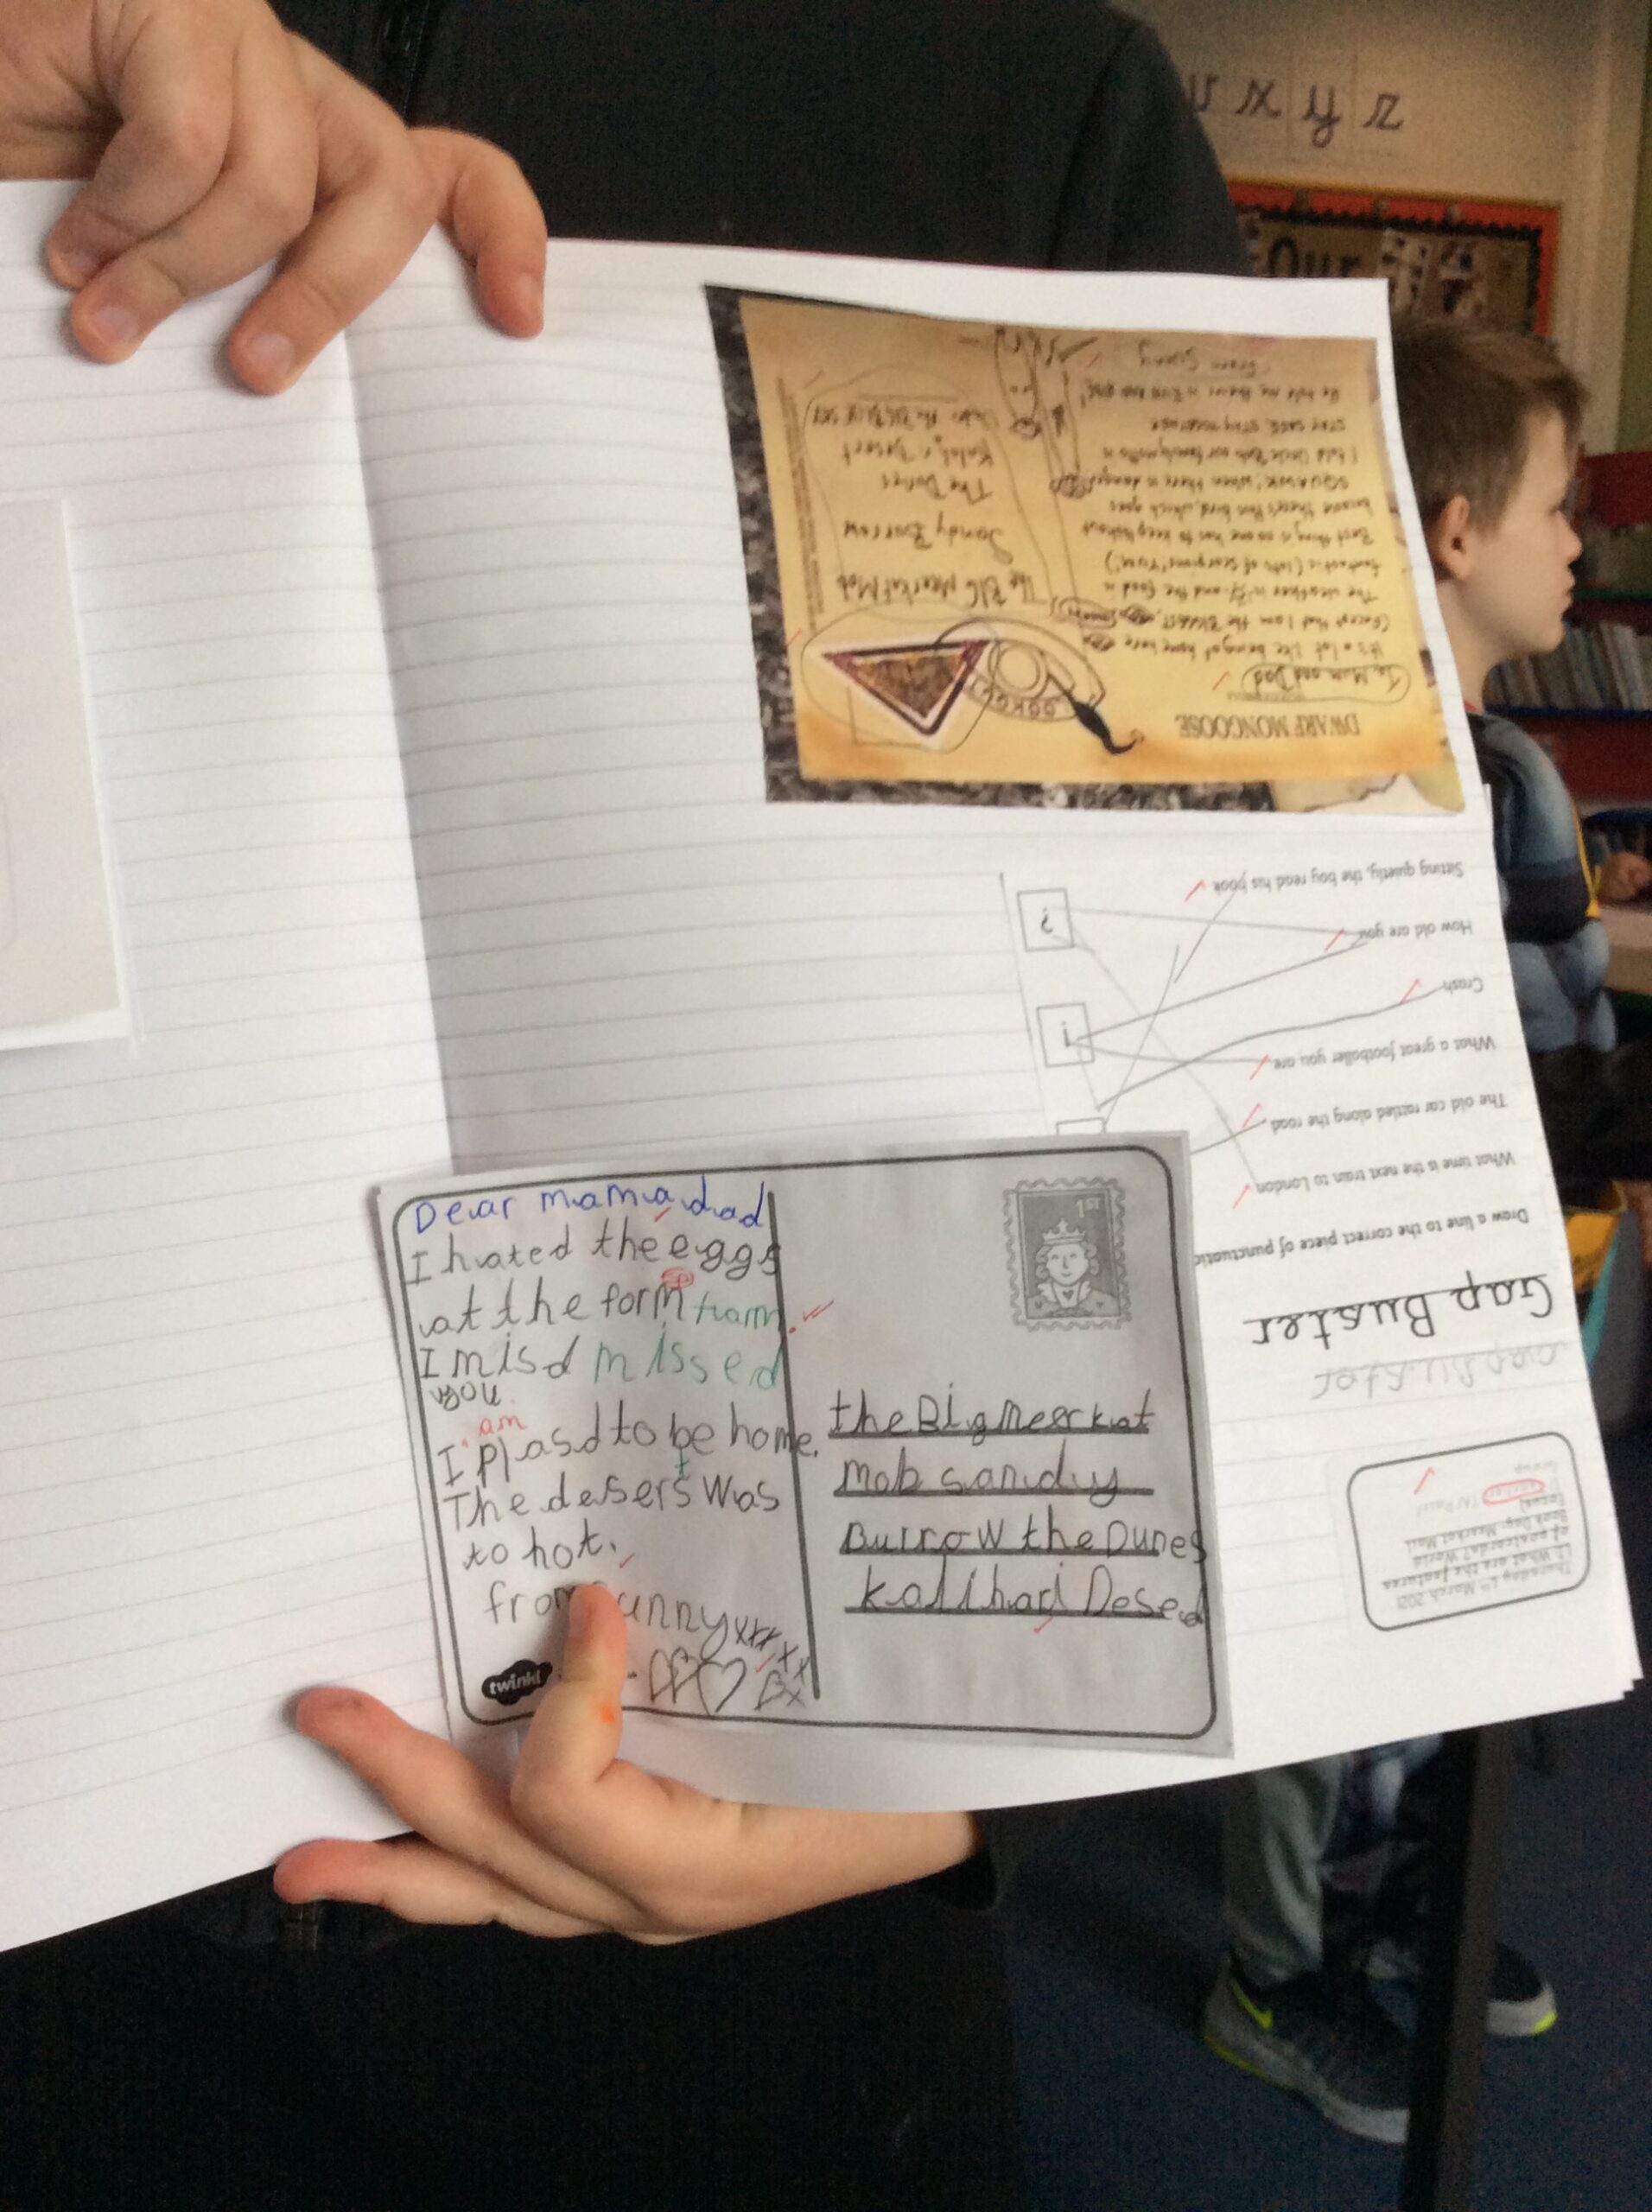 v x y z
Our
Dear mama dad
I hated the eggs
at the form farm.
sp
I misd missed
you
am
I plasd to be home.
t
The desers was
to hot.
from unny xxx
twinkl
1ST
the Big meerkat
mob sandy
Burrow the Dunes
kalihari Desed
Thursday 4th March 2021
of postcards? World
Book Day- Meerkat Mail
Gap Buster
Gap Buster
Draw a line to the correct piece of punctuatio
What time is the next train to London
The old car rattled along the road
What a great footballer you are
Crash
How old are you
Sitting quietly, the boy read his book
!
?
DWARF MONGOOSE
To Mum and Dad
It's a lot like being at home here
(Except that I am the BIGGEST
The weather is and the food is
fantastic (lots of scorpions YUM!)
Best thing is no one has to keep lookout
because there's this bird which goes
SQUAWK! when there is danger
I told Uncle Bob our family motto is
STAY SAFE, STAY TOGETHER
He told me theirs is
from Sunny
LOOKOUT
The BIG Meerkat Mob
Sandy Burrow
The Dunes
Kalahari Desert